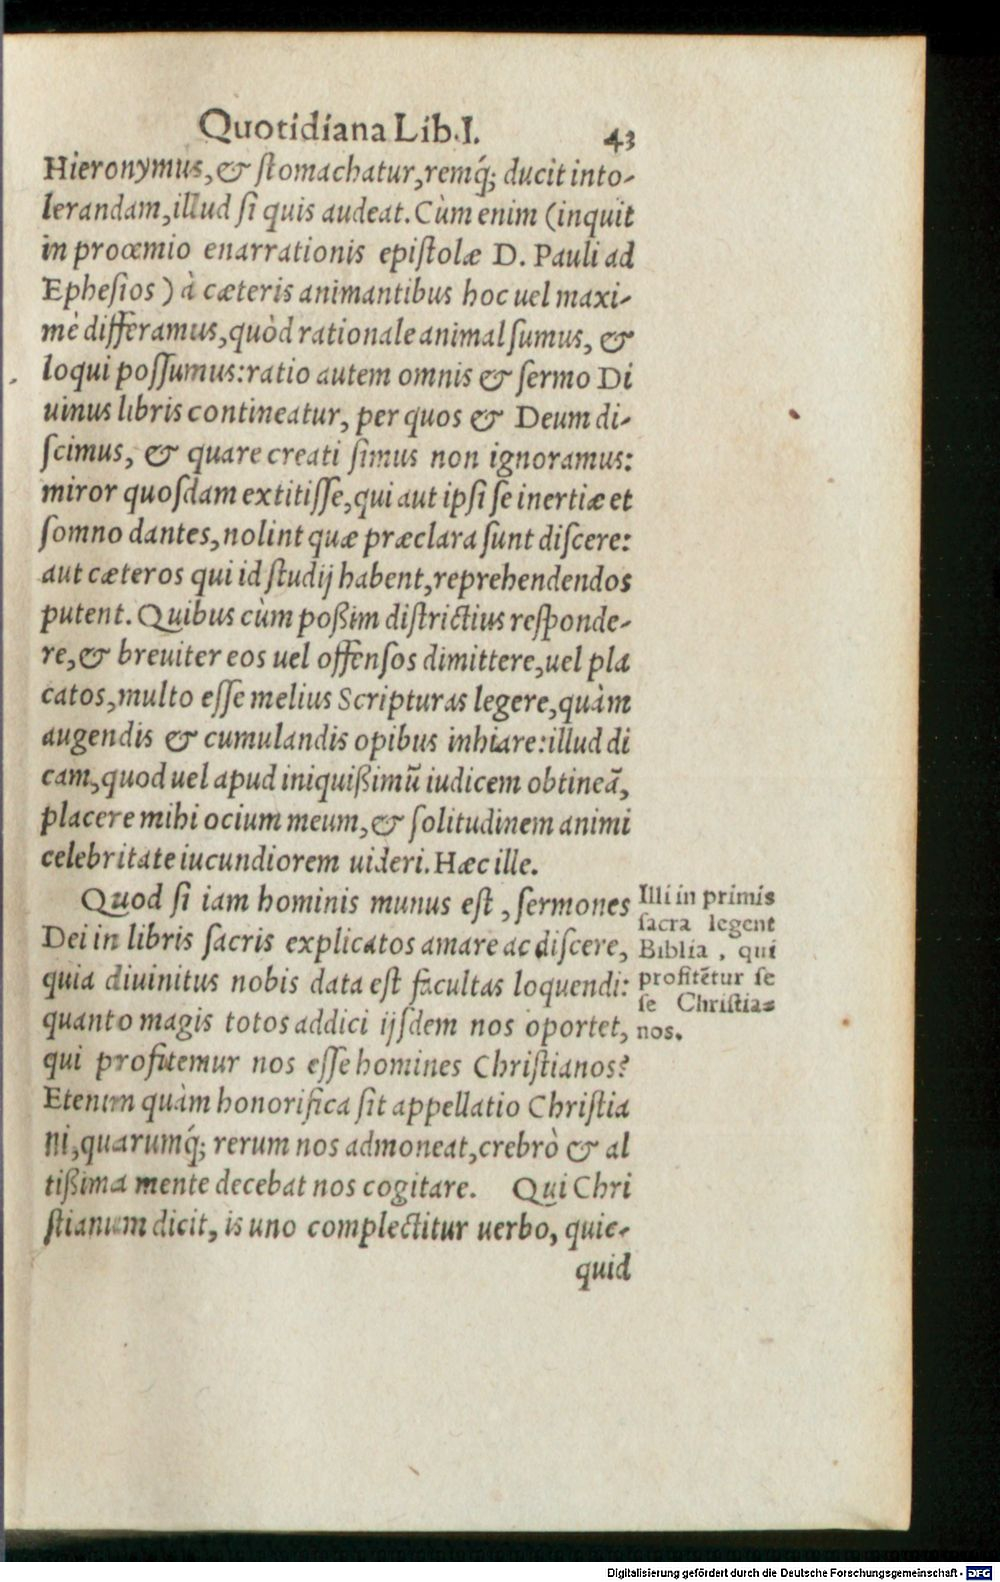 Quotidiana Lib.I. 43
Hieronymus, & ſtomachatur, remq́; ducit into-
lerandam, illud ſi quis audeat. Cùm enim (inquit
in proœmio enarrationis epiſtolæ D. Pauli ad
Epheſios) à cæteris animantibus hoc uel maxi-
mè differamus, quòd rationale animal ſumus, &
loqui poſſumus: ratio autem omnis & ſermo Di
uinus libris contineatur, per quos & Deum di-
ſcimus, & quare creati ſimus non ignoramus:
miror quoſdam extitiſſe, qui aut ipſi ſe inertiæ et
ſomno dantes, nolint quæ præclara ſunt diſcere:
aut cæteros qui id ſtudij habent, reprehendendos
putent. Quibus cùm poßim diſtrictius reſponde-
re, & breuiter eos uel offenſos dimittere, uel pla
catos, multo eſſe melius Scripturas legere, quàm
augendis & cumulandis opibus inhiare: illud di
cam, quod uel apud iniquißimũ iudicem obtineã,
placere mihi ocium meum, & ſolitudinem animi
celebritate iucundiorem uideri. Hæc ille.
Quod ſi iam hominis munus eſt, ſermones
Dei in libris ſacris explicatos amare ac diſcere,
quia diuinitus nobis data eſt facultas loquendi:
quanto magis totos addici ijſdem nos oportet,
qui profitemur nos eſſe homines Chriſtianos?
Etenim quàm honorifica ſit appellatio Chriſtia
ni, quarumq́; rerum nos admoneat, crebrò & al
tißima mente decebat nos cogitare. Qui Chri
ſtianum dicit, is uno complectitur uerbo, quic-
quid
Illi in primis
ſacra legent
Biblia, qui
profitẽtur ſe
ſe Chriſtia-
nos.
Digitalisierung gefördert durch die Deutsche Forschungsgemeinschaft - DFG